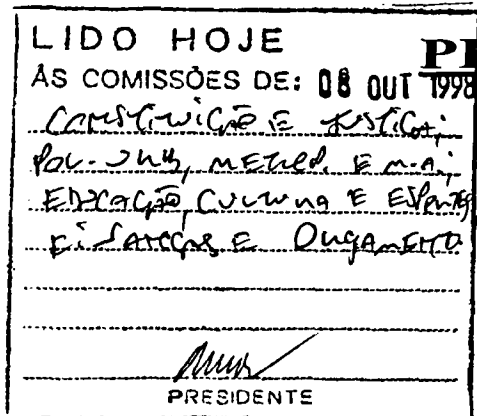 LIDO HOJE
ÀS COMISSÕES DE: 08 OUT 1998
CONSTITUIÇÃO E JUSTIÇA;
POL. URB, METROP. E M.A;
EDUCAÇÃO, CULTURA E ESPORTES
FINANÇAS E ORÇAMENTO
PRESIDENTE